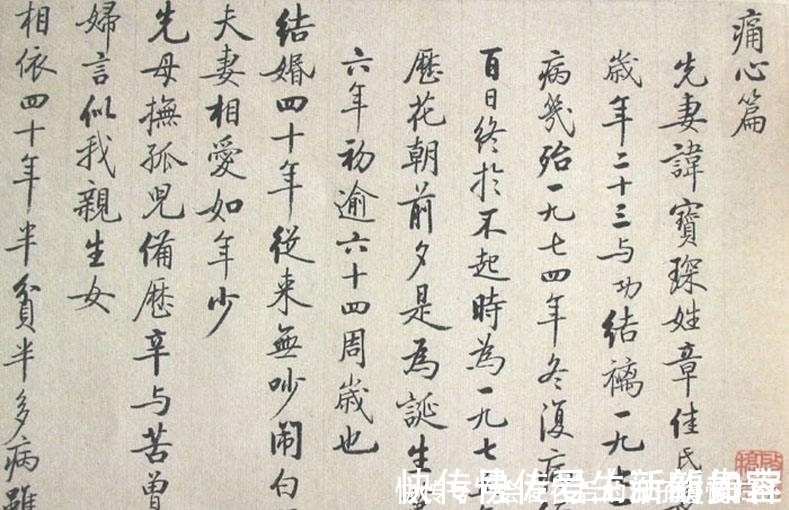 痛心篇
先妻諱寶琛姓章佳氏
歲年二十三与功結褵一九七
病幾殆一九七四年冬復病
百日終於不起時為一九七
歷花朝前夕是為誕生
六年初逾六十四周歲也
結婚四十年從来無吵鬧白
夫妻相愛如年少
先母撫孤兒備歷辛与苦曾
婦言似我親生女
相依四十年半貧半多病雖
快传